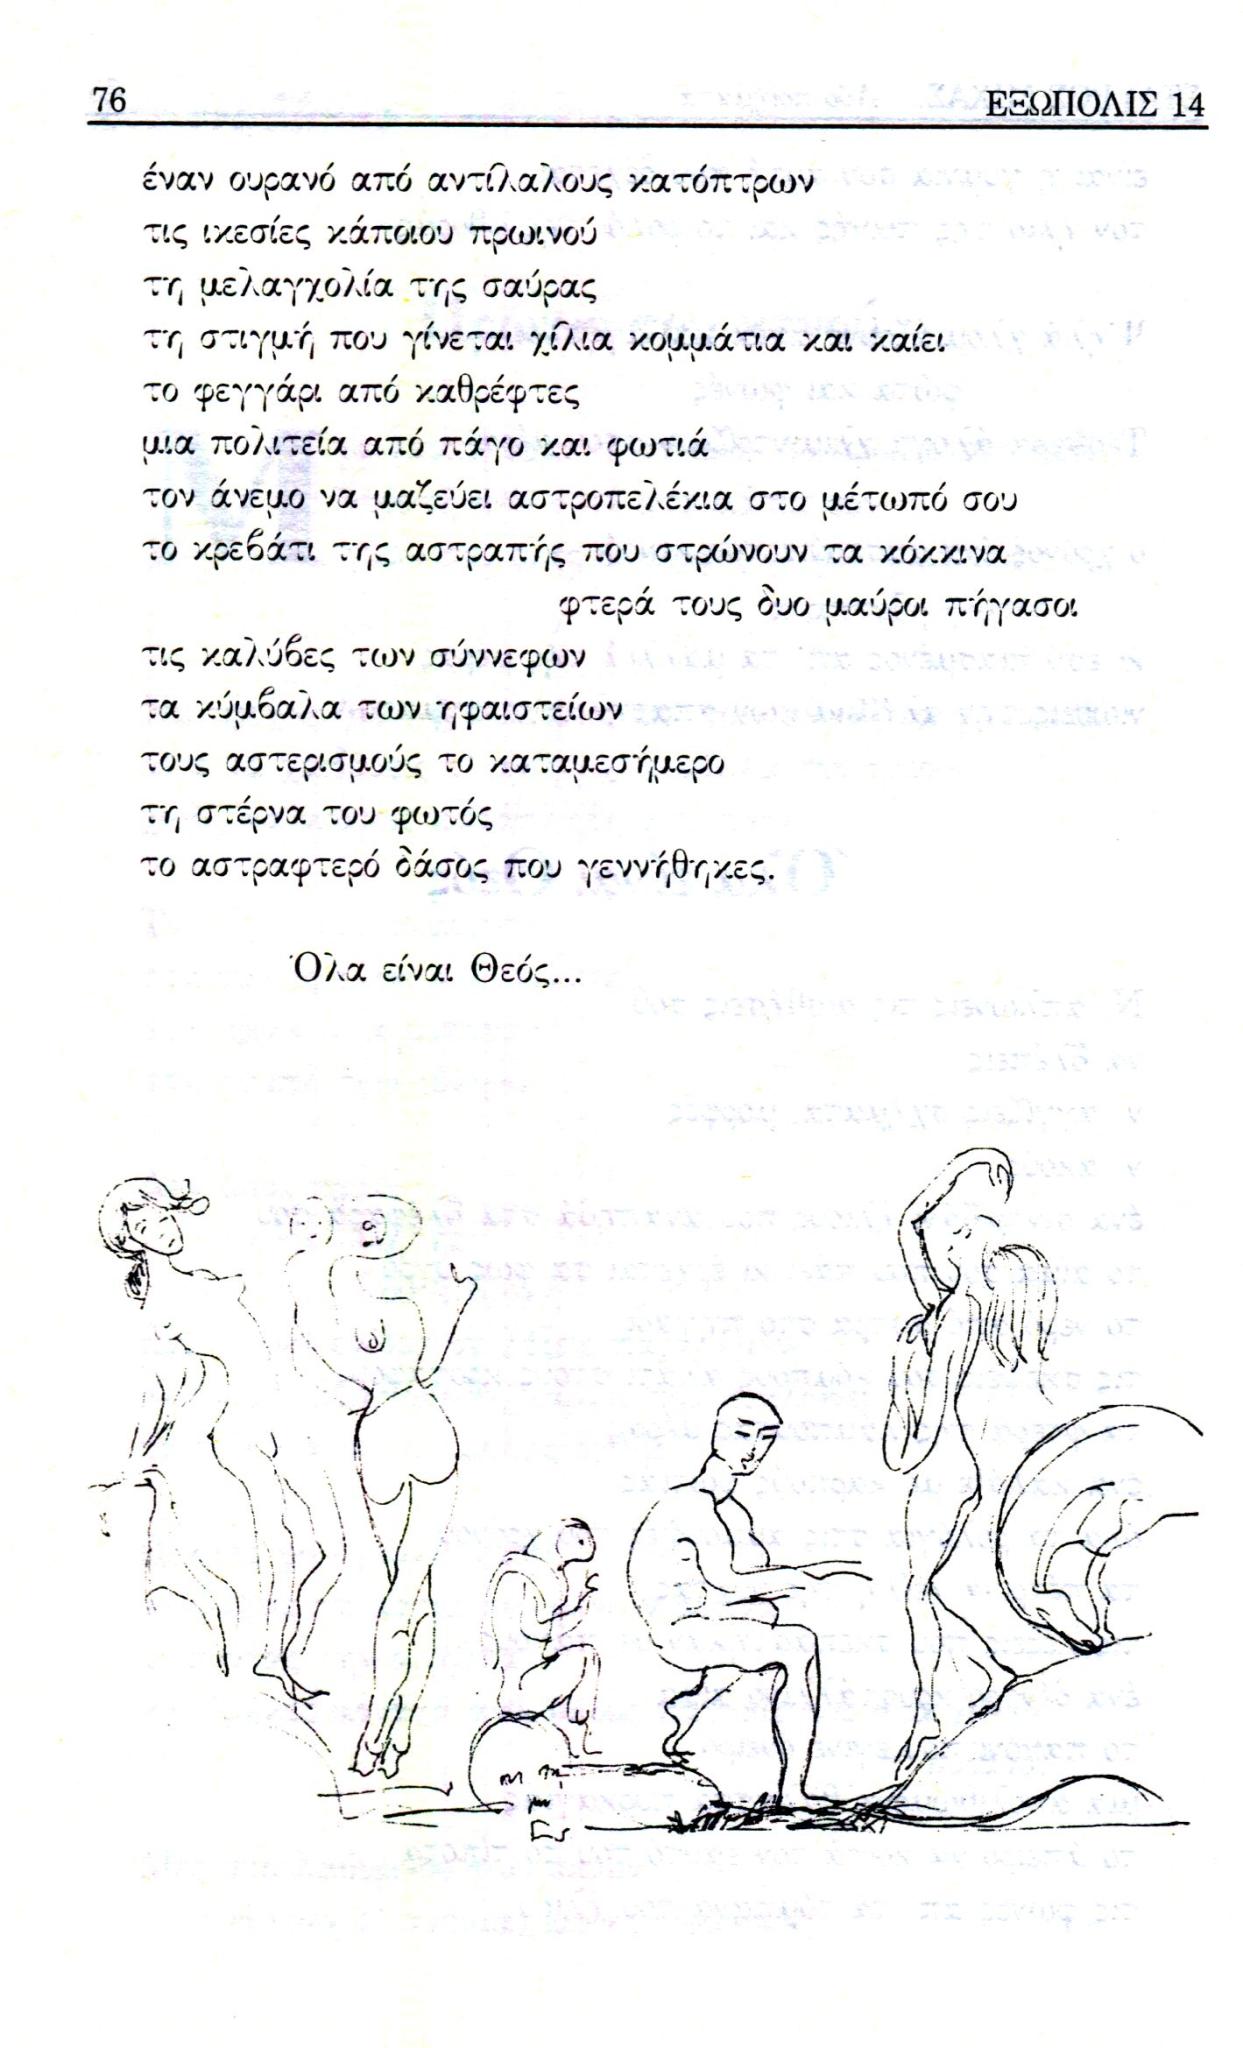 76 ΕΞΩΠΟΛΙΣ 14
έναν ουρανό από αντίλαλους κατόπτρων
τις ικεσίες κάποιου πρωινού
τη μελαγχολία της σαύρας
τη στιγμή που γίνεται χίλια κομμάτια και καίει
το φεγγάρι από καθρέφτες
μια πολιτεία από πάγο και φωτιά
τον άνεμο να μαζεύει αστροπελέκια στο μέτωπό σου
το κρεβάτι της αστραπής που στρώνουν τα κόκκινα
φτερά τους δυο μαύροι πήγασοι
τις καλύβες των σύννεφων
τα κύμβαλα των ηφαιστείων
τους αστερισμούς το καταμεσήμερο
τη στέρνα του φωτός
το αστραφτερό δάσος που γεννήθηκες.
Όλα είναι Θεός...